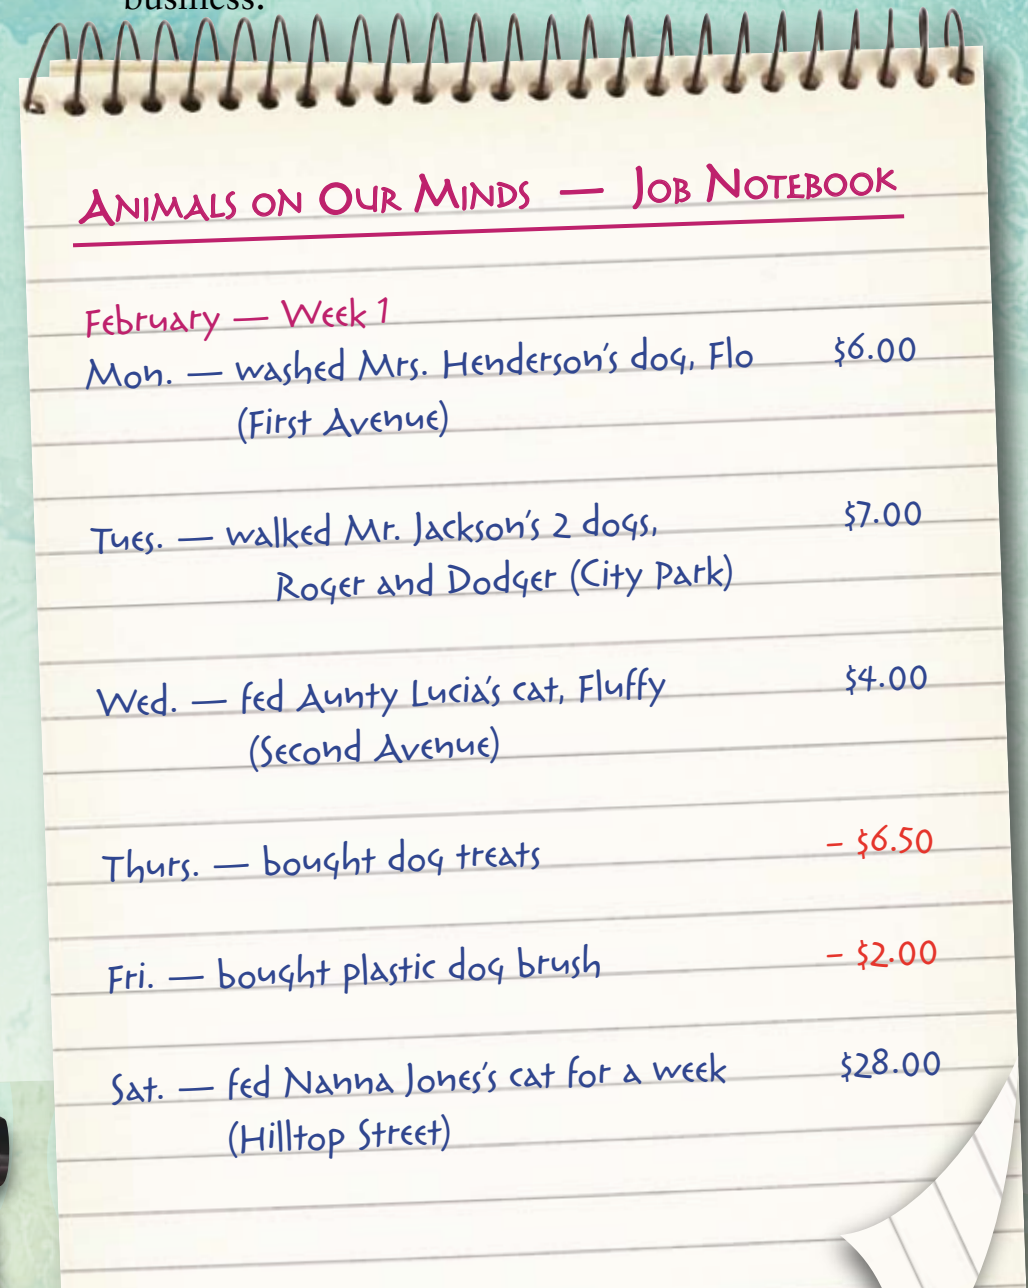 business.
ANIMALS ON OUR MINDS — JOB NOTEBOOK
February — Week 1
Mon. — washed Mrs. Henderson's dog, Flo $6.00
(First Avenue)
Tues. — walked Mr. Jackson's 2 dogs, $7.00
Roger and Dodger (City Park)
Wed. — fed Aunty Lucia's cat, Fluffy $4.00
(Second Avenue)
Thurs. — bought dog treats – $6.50
Fri. — bought plastic dog brush – $2.00
Sat. — fed Nanna Jones's cat for a week $28.00
(Hilltop Street)